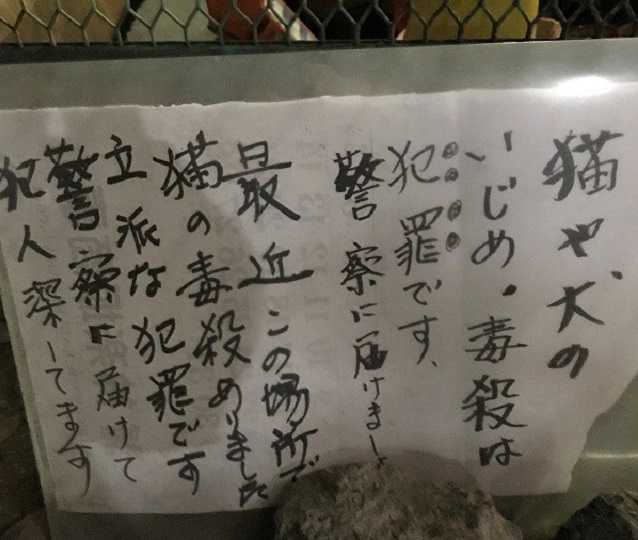 猫や犬の
いじめ・毒殺は
犯罪です、
警察に届けまし
最近この場所で
猫の毒殺ありました
立派な犯罪です
警察に届けて
犯人探してます